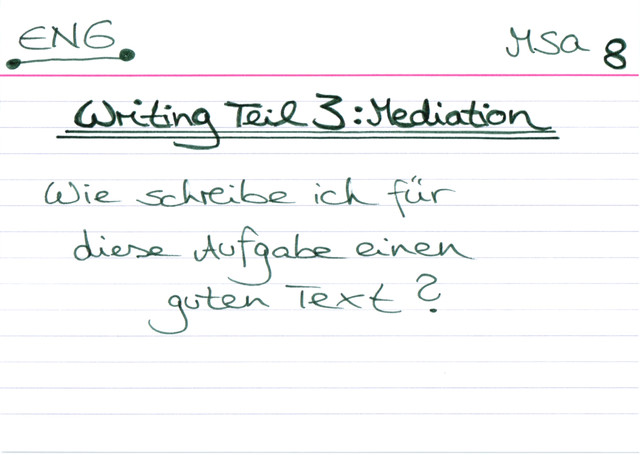 ENG
MSa 8
Writing Teil 3: Mediation
Wie schreibe ich für
diese Aufgabe einen
guten Text?